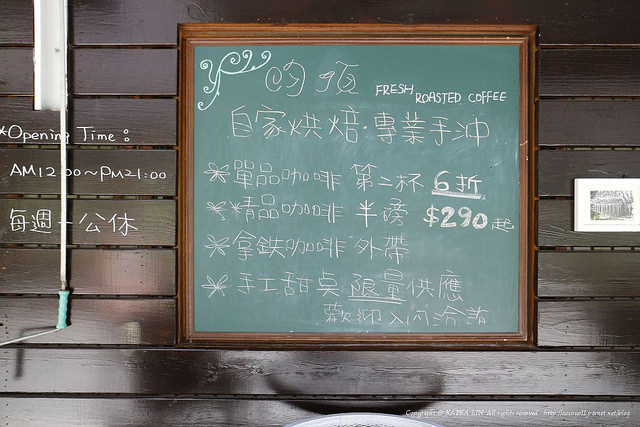 昀頂 FRESH ROASTED COFFEE
自家烘焙·專業手沖
*單品咖啡 第二杯 6折
*精品咖啡 半磅 $290起
*拿鐵咖啡 外帶
*手工甜點 限量供應
歡迎入內洽詢
*Opening Time:
AM12:00~PM21:00
每週一公休
Copyright © KAZKA LIN All rights reserved